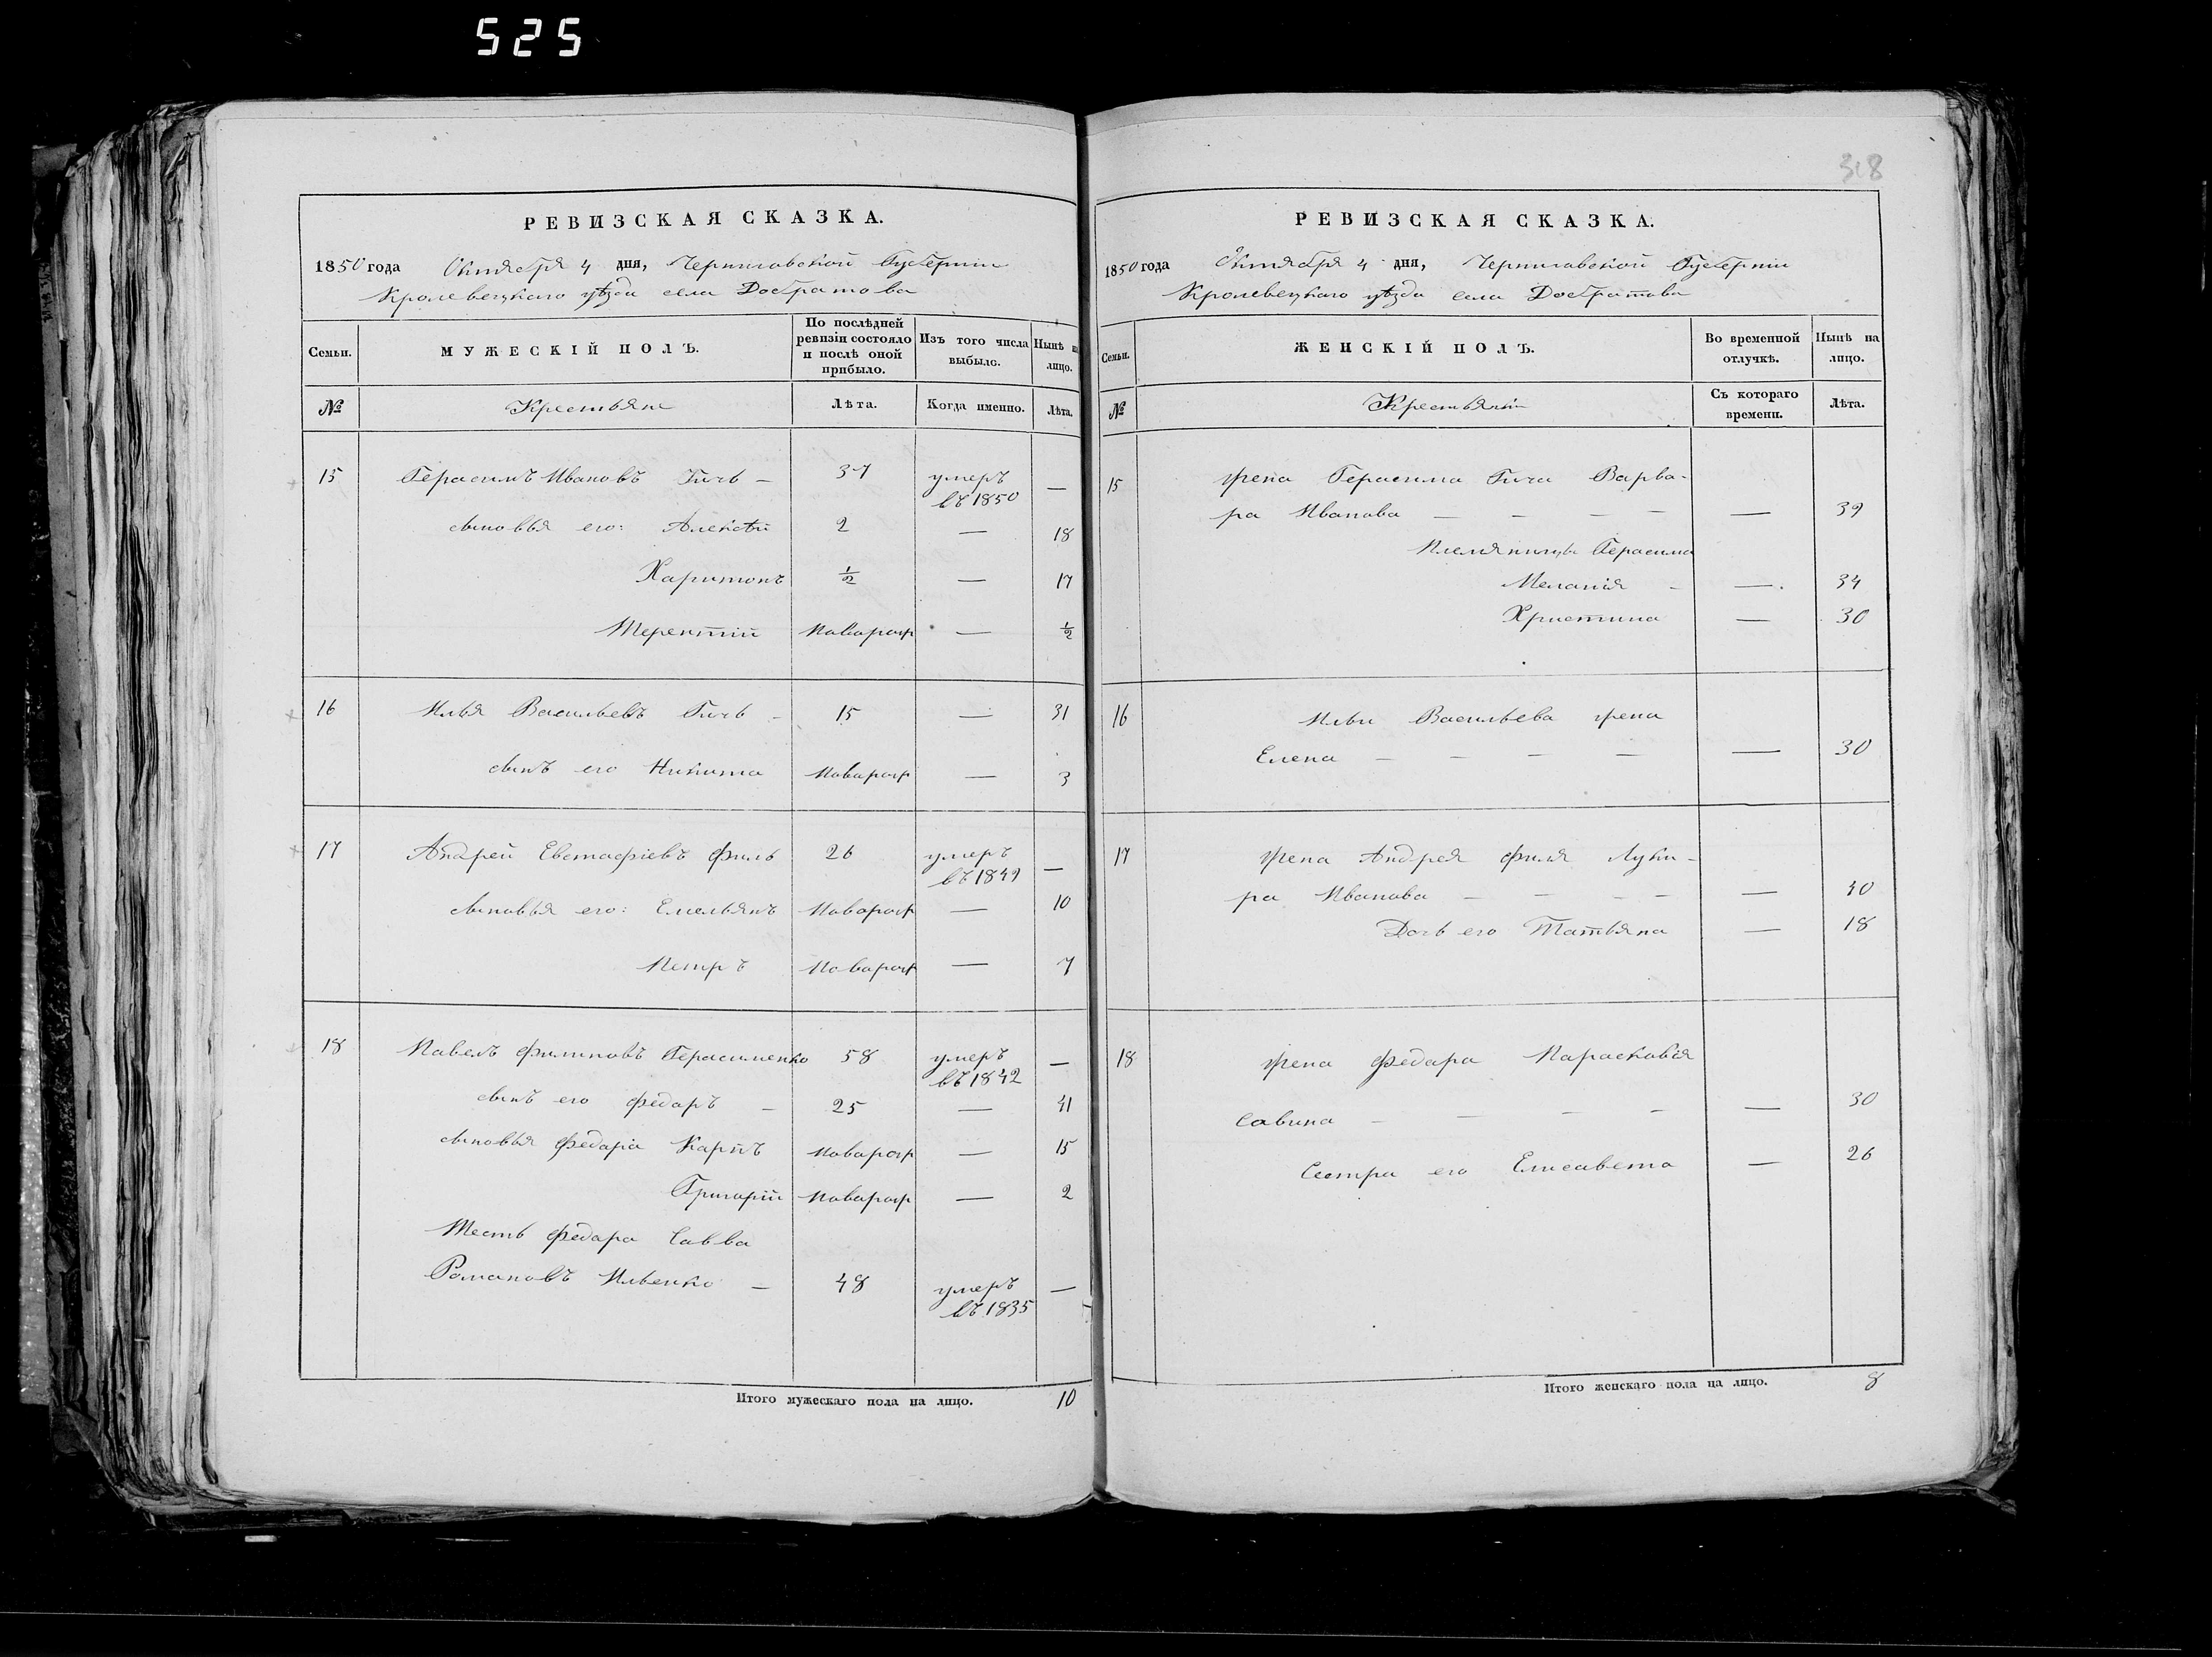 525
318
РЕВИЗСКАЯ СКАЗКА.
1850 года Октября 4 дня, Черниговской Губернiи
Кролевецкаго уѣзда села Добратова
Семьи.
МУЖЕСКІЙ ПОЛЪ.
По послѣдней ревизіи состояло и послѣ оной прибыло.
Изъ того числа выбыло.
Нынѣ на лицо.
№
Крестьяне
Лѣта.
Когда именно.
Лѣта.
15 Герасимъ Ивановъ Гичь — 37 умеръ въ 1850 —
сыновья его: Алексѣй 2 — 18
Харитонъ ½ — 17
Терентій новорож — ½
16 Илья Васильевъ Гичь — 15 — 31
сынъ его Никита новорож — 3
17 Андрей Евстафіевъ Филь 26 умеръ въ 1849 —
сыновья его: Емельянъ новорож — 10
Петръ новорож — 7
18 Павелъ Филиповъ Герасименко 58 умеръ въ 1842 —
сынъ его Федоръ — 25 — 41
сыновья Федора Карпъ новорож — 15
Григорій новорож — 2
Тесть Федора Савва
Романовъ Ильенко — 48 умеръ въ 1835 —
Итого мужескаго пола на лицо. 10
РЕВИЗСКАЯ СКАЗКА.
1850 года Октября 4 дня, Черниговской Губерніи
Кролевецкаго уѣзда села Добратова
Семьи.
ЖЕНСКІЙ ПОЛЪ.
Во временной отлучкѣ.
Нынѣ на лицо.
№
Крестьянки
Съ котораго времени.
Лѣта.
15 жена Герасима Гича Варва-
ра Иванова — — — — — 39
Племяницы Герасима
Меланія — — 34
Христина — 30
16 Ильи Васильева жена
Елена — — — — — 30
17 жена Андрея Филя Луки-
ра Иванова — — — — — 40
Дочь его Татьяна — 18
18 жена Федора Парасковія
Савина — — — — — 30
Сестра его Елисавета — 26
Итого женскаго пола на лицо. 8